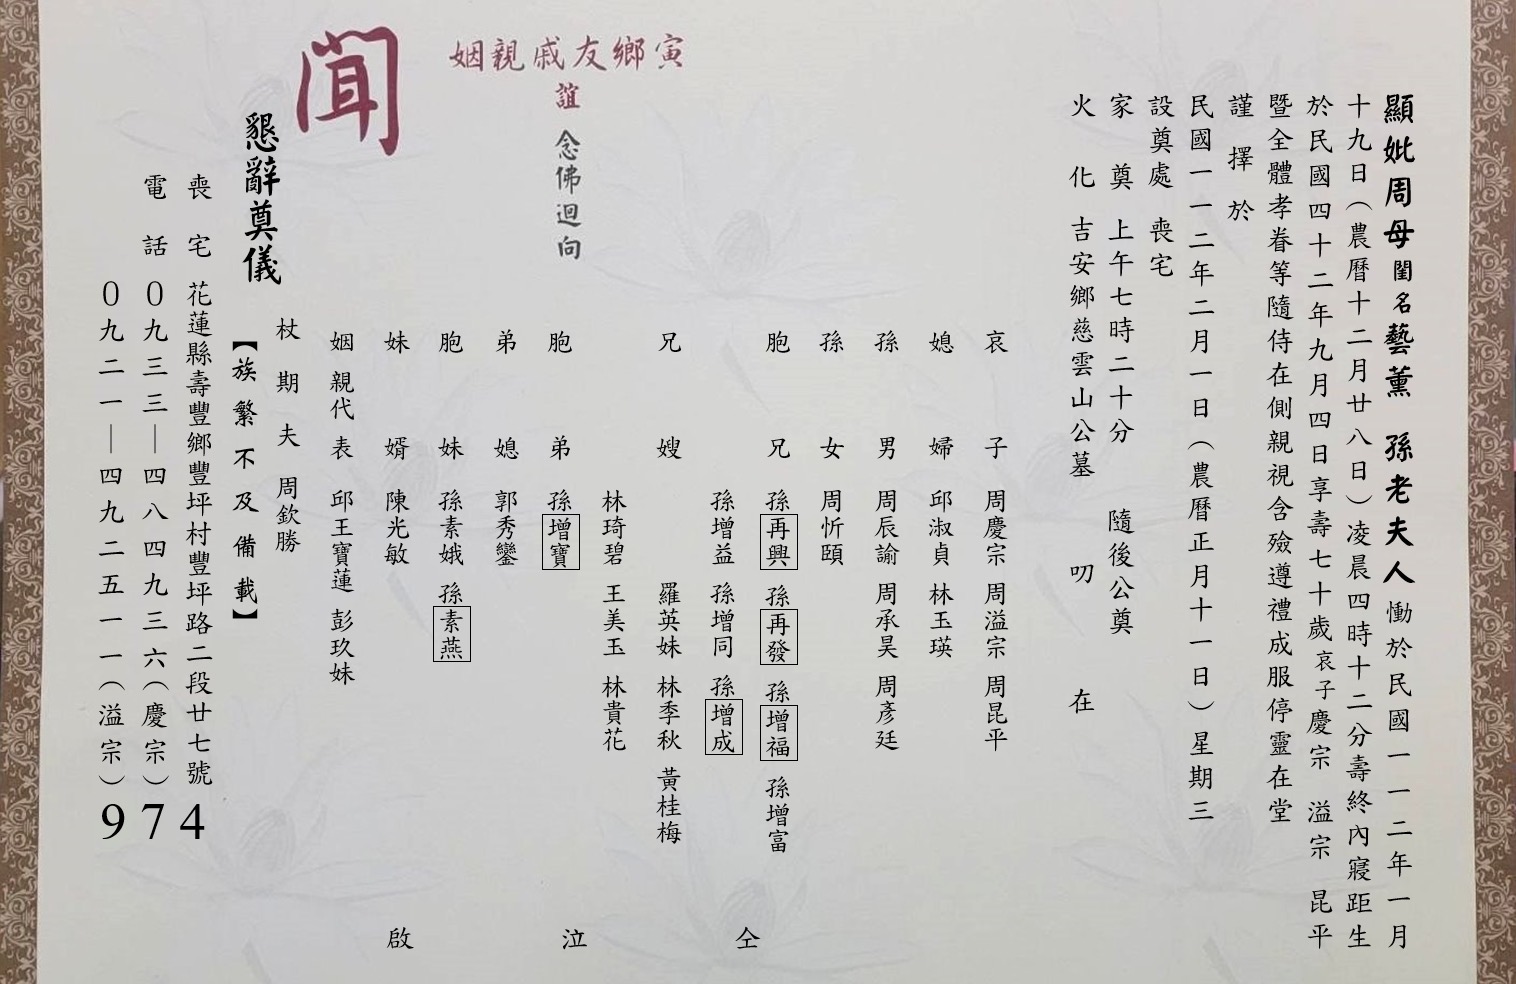 顯妣周母閨名藝薰 孫老夫人慟於民國一一二年一月
十九日（農曆十二月廿八日）凌晨四時十二分壽終內寢距生
於民國四十二年九月四日享壽七十歲哀子慶宗 溢宗 昆平
暨全體孝眷等隨侍在側親視含殮遵禮成服停靈在堂
謹擇於
民國一一二年二月一日（農曆正月十一日）星期三
設奠處 喪宅
家奠 上午七時二十分 隨後公奠
火化 吉安鄉慈雲山公墓 叨在
姻親戚友鄉寅
誼 念佛迴向
聞
哀子 周慶宗 周溢宗 周昆平
媳婦 邱淑貞 林玉瑛
孫男 周辰諭 周承昊 周彥廷
孫女 周忻頤
胞兄 孫再興 孫再發 孫增福 孫增富
孫增益 孫增同 孫增成
兄嫂 羅英妹 林季秋 黃桂梅
林琦碧 王美玉 林貴花
胞弟 孫增寶
弟媳 郭秀鑾
胞妹 孫素娥 孫素燕
妹婿 陳光敏
姻親代表 邱王寶蓮 彭玖妹
杖期夫 周欽勝
仝泣啟
懇辭奠儀
【族繁不及備載】
喪宅 花蓮縣壽豐鄉豐坪村豐坪路二段廿七號 4
電話 0九三三—四八四九三六（慶宗） 7
0九二一—四九二五一一（溢宗） 9